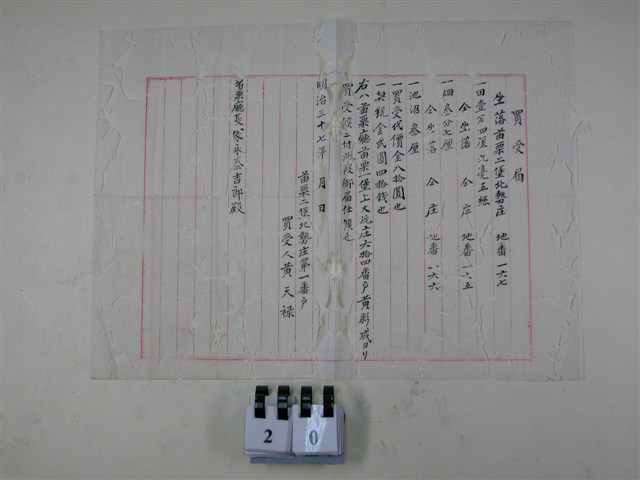 買受届
坐落苗栗二堡北勢庄　地番一六七
一田壹分四厘九毫五絲
仝坐落　仝庄　地番一六五
一畑叁分七厘
仝坐落　仝庄　地番一六六
一池沼叁厘
一買受代價金八拾圓也
一契税金貳圓四拾錢也
右ハ苗栗廳苗栗一堡上大坑庄六拾四番戶黃彩成ヨリ
買受候ニ付此段御届仕候也
明治三十七年　月　日
苗栗二堡北勢庄第一番戶
買受人黃天祿
苗栗廳長家永泰吉郎殿
2 0